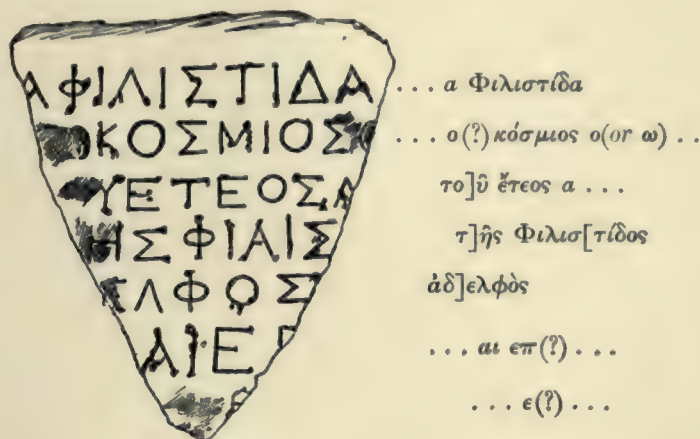 ΑΦΙΛΙΣΤΙΔΑ
ΚΟΣΜΙΟΣ
ΥΕΤΕΟΣΑ
ΗΣΦΙΑΙΣ
ΕΛΦΟΣ
ΑΙΕΓ
... α Φιλιστίδα
... ο(?) κόσμιος ο(or ω) ..
το]ῦ ἔτεος α ...
τ]ῆς Φιλισ[τίδος
ἀδ]ελφὸς
... αι επ(?) ...
... ε(?) ...